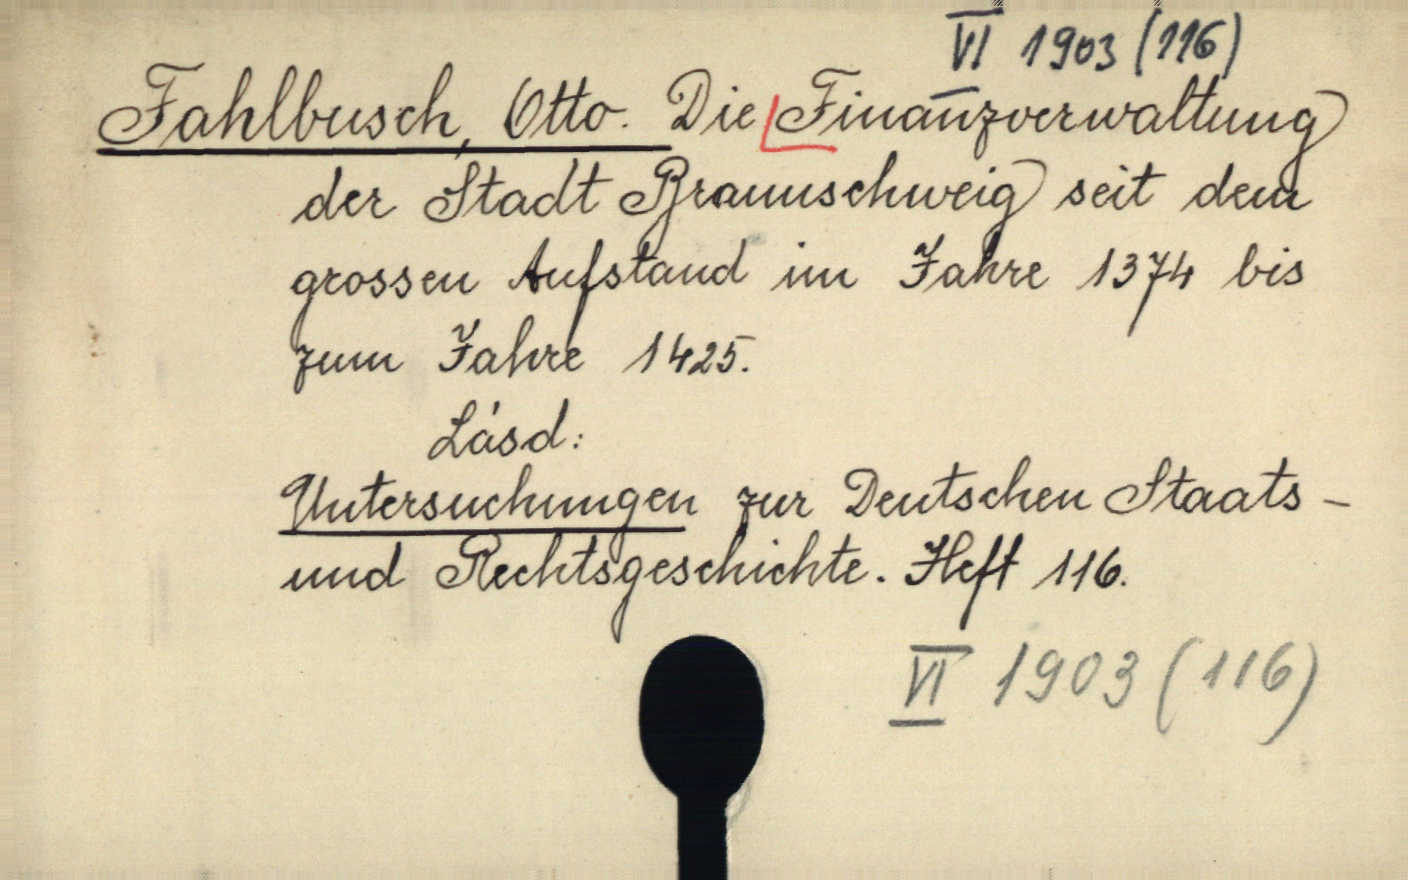 VI 1903 (116)
Fahlbusch, Otto. Die Finanzverwaltung
der Stadt Braunschweig seit dem
grossen Aufstand im Jahre 1374 bis
zum Jahre 1425.
Lásd:
Untersuchungen zur Deutschen Staats-
und Rechtsgeschichte. Heft 116.
VI 1903 (116)